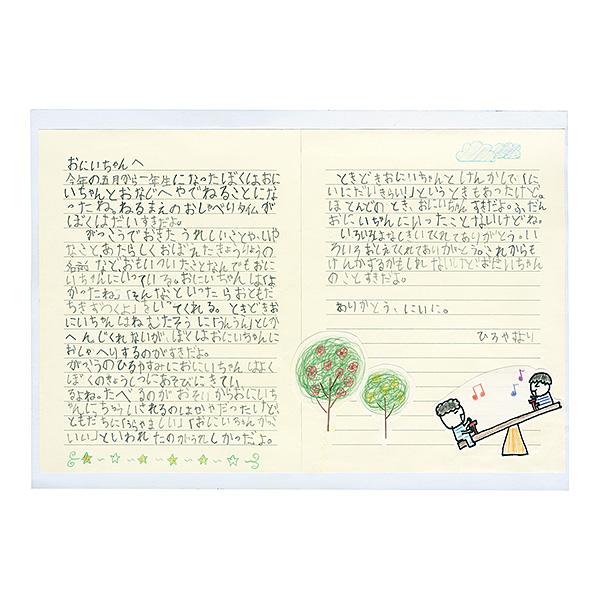 おにいちゃんへ
今年の五月から一年生になったぼくはおに
いちゃんとおなじへやでねることにな
ったね。ねるまえのおしゃべりタイムが
ぼくはだいすきだよ。
がっこうでおきたうれしいことや、いや
なこと、あたらしくおぼえたきょうりゅうの
名前など、おもいついたことなんでもおに
いちゃんにいっている。おにいちゃんは「よ
かったね。」「そんなこといったらおともだ
ちきずつくよ」をいってくれる。ときどきお
にいちゃんはねむたそうに「うんうん」としか
へんじくれないが、ぼくはおにいちゃんに
おしゃべりするのがすきだよ。
がっこうのひるやすみにおにいちゃんはよく
ぼくのきょうしつにあそびにきてい
るよね。たべるのがおそいからおにいち
ゃんにちゅういされるのはいやだったけど、
ともだちに「うらやましい」「おにいちゃんかっこ
いい」といわれたのがうれしかったよ。
ときどきおにいちゃんとけんかして「に
いにだいきらい!」というときもあったけど。
ほとんどのとき、おにいちゃんすきだよ。ふだん
おにいちゃんにいったことないけどね。
いろいろはなしきいてくれてありがとう。い
ろいろおしえてくれてありがとう。これからも
けんかするかもしれないけどおにいちゃん
のことすきだよ。
ありがとう、にいに。
ひろやより